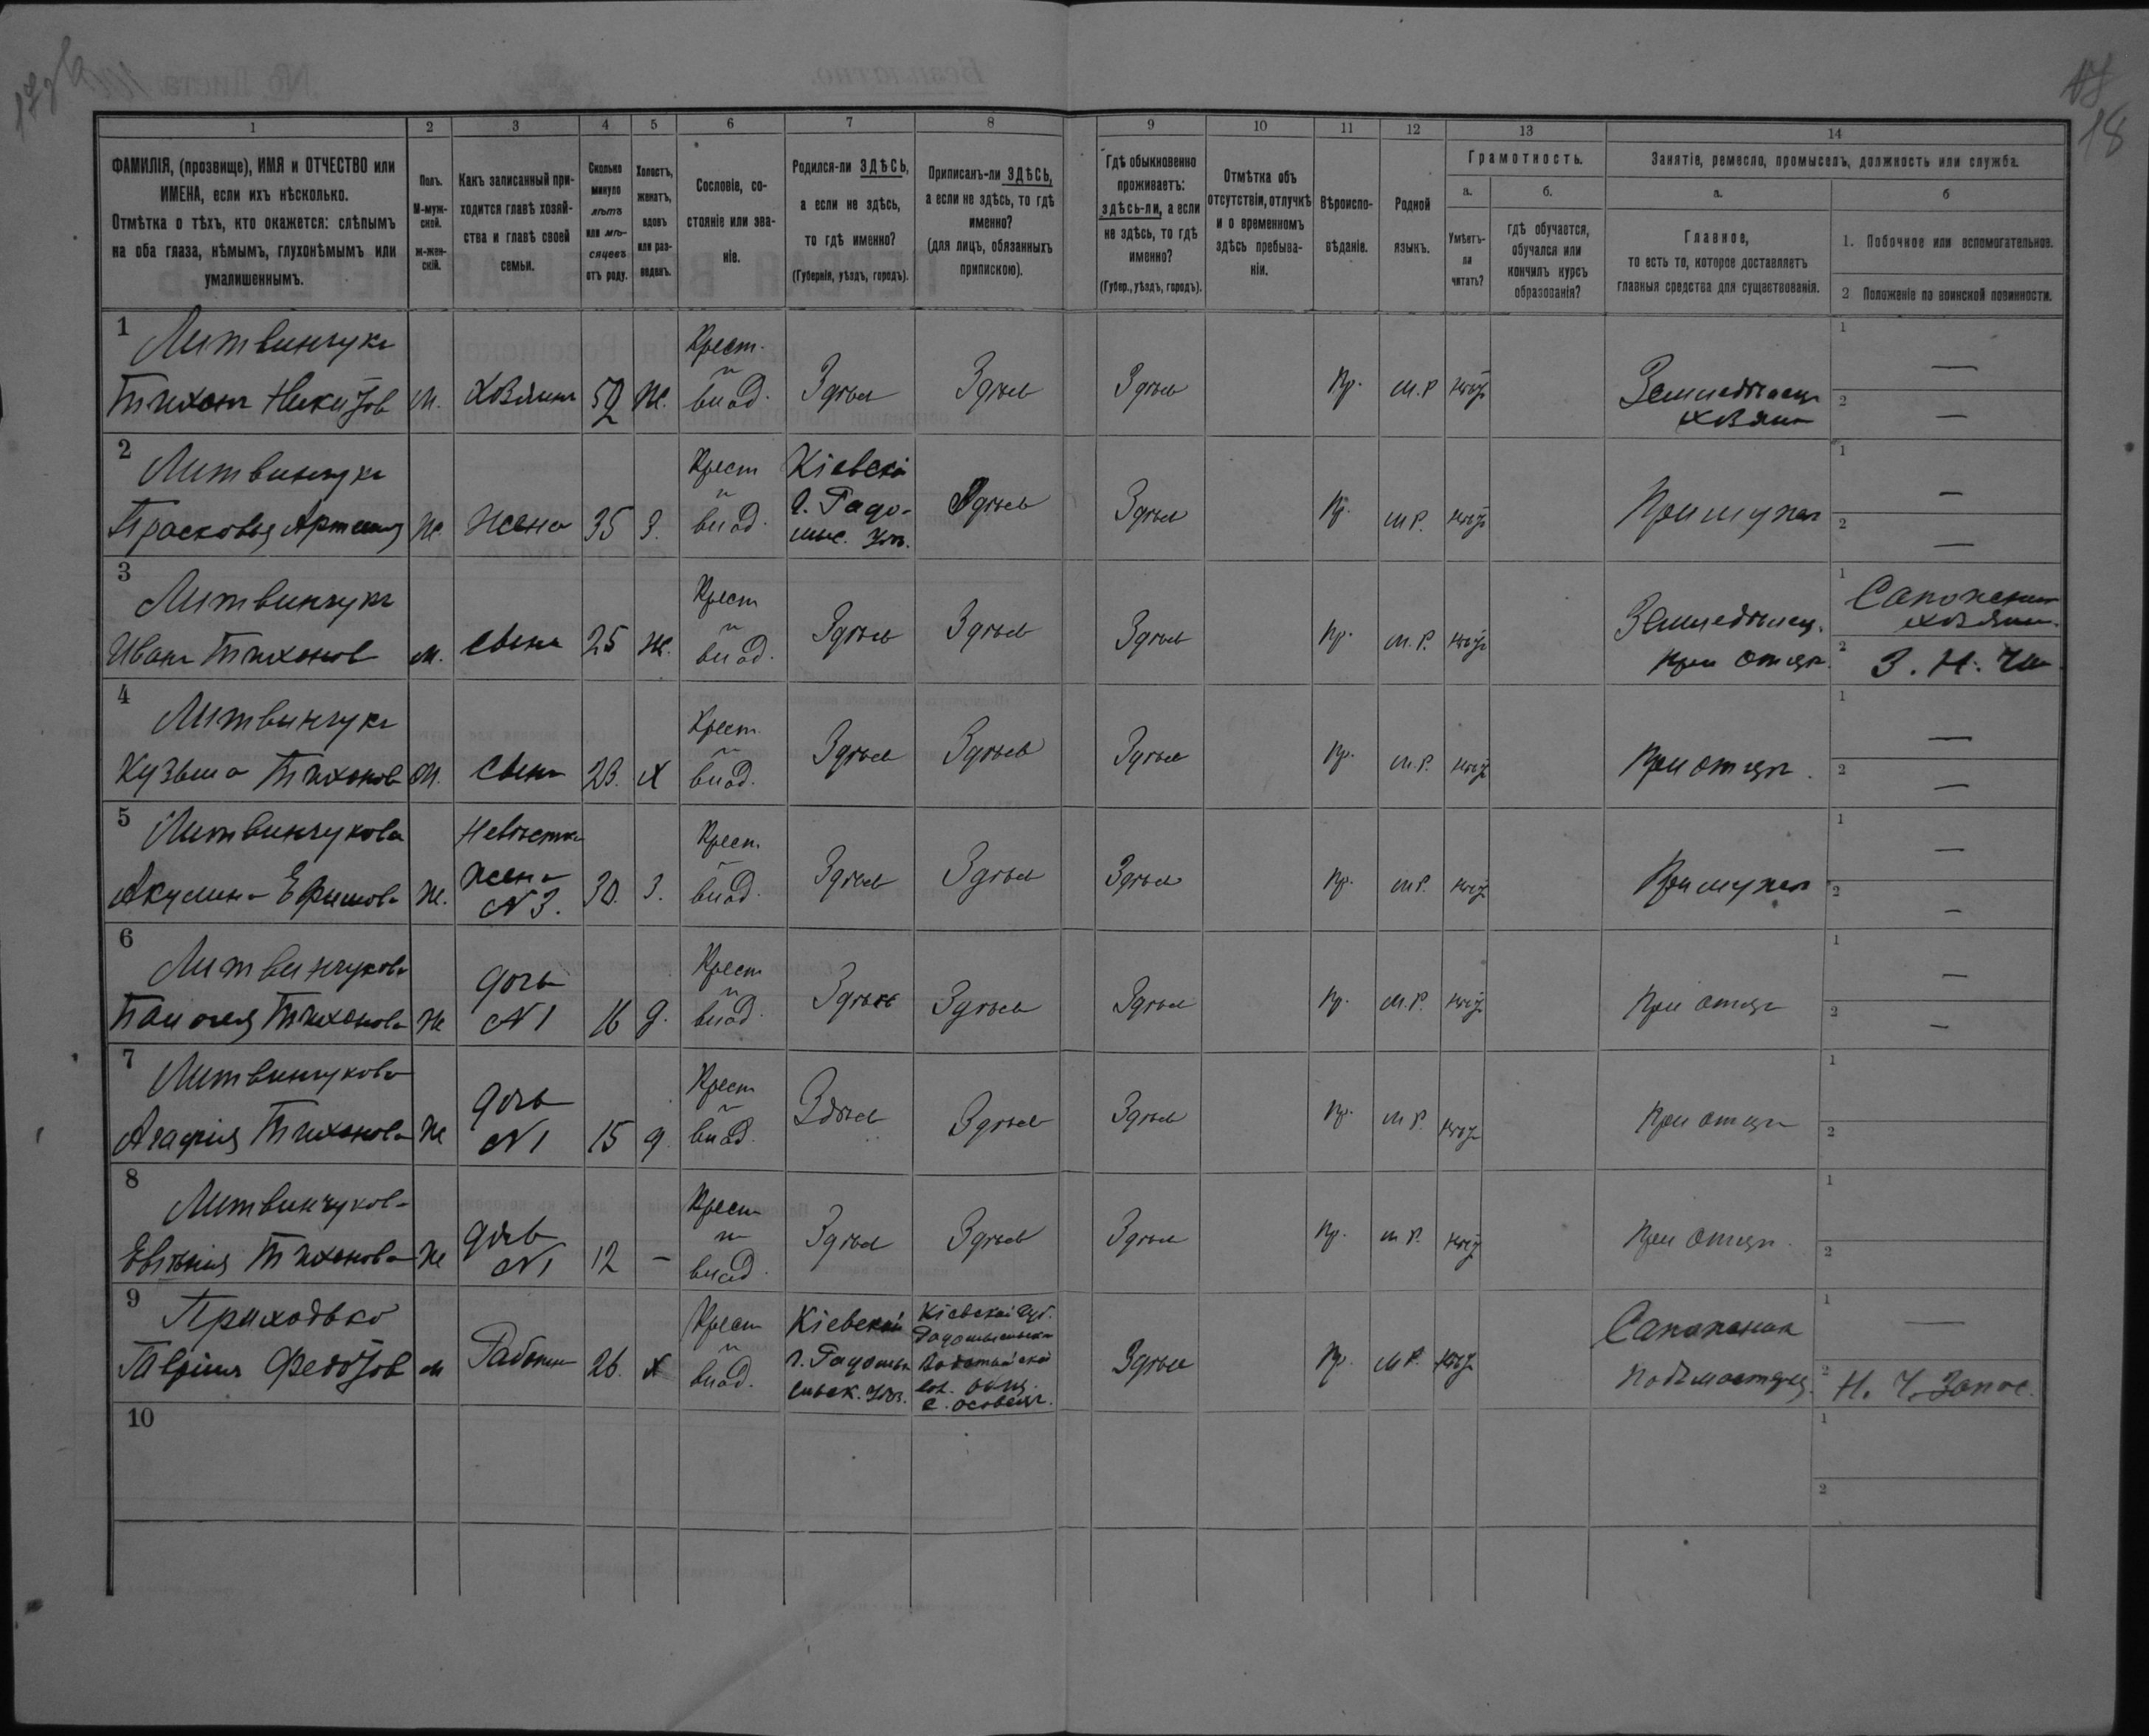 18
1 2 3 4 5 6 7 8 9 10 11 12 13 14
ФАМИЛІЯ, (прозвище), ИМЯ и ОТЧЕСТВО или
ИМЕНА, если ихъ нѣсколько.
Отмѣтка о тѣхъ, кто окажется: слѣпымъ
на оба глаза, нѣмымъ, глухонѣмымъ или
умалишеннымъ.
Полъ.
М-муж-
ской.
ж-жен-
скій.
Какъ записанный при-
ходится главѣ хозяй-
ства и главѣ своей
семьи.
Сколько
минуло
лѣтъ
или мѣ-
сяцевъ
отъ роду.
Холостъ,
женатъ,
вдовъ
или раз-
веденъ.
Сословіе, со-
стояніе или зва-
ніе.
Родился-ли ЗДѢСЬ,
а если не здѣсь,
то гдѣ именно?
(Губернія, уѣздъ, городъ).
Приписанъ-ли ЗДѢСЬ,
а если не здѣсь, то гдѣ
именно?
(для лицъ, обязанныхъ
припискою).
Гдѣ обыкновенно
проживаетъ:
здѣсь-ли, а если
не здѣсь, то гдѣ
именно?
(Губер., уѣздъ, городъ).
Отмѣтка объ
отсутствіи, отлучкѣ
и о временномъ
здѣсь пребыва-
ніи.
Вѣроиспо-
вѣданіе.
Родной
языкъ.
Грамотность.
а.
Умѣетъ-
ли
читать?
б.
гдѣ обучается,
обучался или
кончилъ курсъ
образованія?
Занятіе, ремесло, промыселъ, должность или служба.
а.
Главное,
то есть то, которое доставляетъ
главныя средства для существованія.
б
1. Побочное или вспомогательное.
2 Положеніе по воинской повинности.
1 Литвинчукъ Крест. 1 —
Тихонъ Никитовъ м. хозяинъ 52 ж. влад. Здѣсь Здѣсь Здѣсь Пр. м.р нѣтъ Земледѣлецъ
хозяин 2 —
2 Литвинчукъ Крест Кіевской 1 —
Прасковья ж. жена 35 З. влад. г. Радо-
мыс. уѣз. Здѣсь Здѣсь Пр. м р. нѣтъ При мужѣ 2 —
3 Литвинчукъ Крест 1 Сапожник
хозяин.
Иванъ Тихоновъ м. сынъ 25 ж. влад. Здѣсь Здѣсь Здѣсь Пр. м. р. нѣтъ Земледѣлец.
при отцѣ. 2
4 Литвинчукъ Крест. 1 —
Кузьма Тихоновъ м. сынъ 23. х влад. Здѣсь Здѣсь Здѣсь Пр. м.р. нѣтъ При отцѣ. 2 —
5 Литвинчукова Невѣстка Крест. 1 —
Акулина Ефимова ж. жена
N 3. 30. З. влад. Здѣсь Здѣсь Здѣсь Пр. м р. нѣтъ При мужѣ 2 —
6 Литвинчукова Крест 1 —
Тихонова ж дочь
N 1 16 д. влад. Здѣсь Здѣсь Здѣсь Пр. м.р. нѣтъ При отцѣ 2 —
7 Литвинчукова Крест 1
Агафія Тихонова ж дочь
N 1 15 д влад. Здѣсь Здѣсь Здѣсь Пр. м р. нѣтъ При отцѣ 2
8 Литвинчукова Крест 1
Евгенія Тихонова ж дочь
N 1 12 — влад. Здѣсь Здѣсь Здѣсь Пр. м р. нѣтъ При отцѣ. 2
9 Приходько Крест Кіевской Кіевской Губ. 1 —
м Работник 26. х влад. г. Радомы
сльск. уѣз. Здѣсь Пр. м р. нѣтъ Сапожник 2 Н. Ч. Запас.
10 1
2